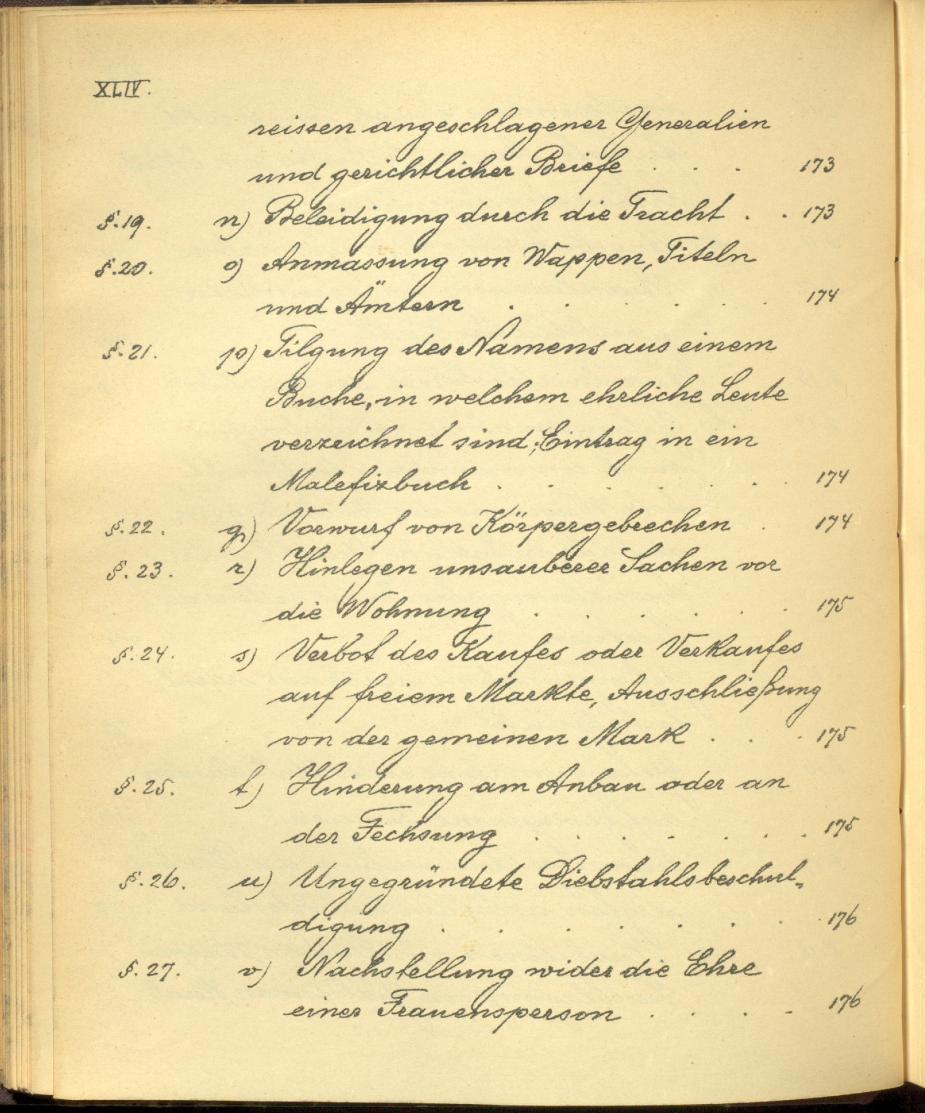 XLIV.
reissen angeschlagener Generalien
und gerichtlicher Briefe . . . 173
§.19. n) Beleidigung durch die Tracht . . 173
§.20. o) Anmassung von Wappen, Titeln
und Ämtern . . . . . . 174
§.21. p) Tilgung des Namens aus einem
Buche, in welchem ehrliche Leute
verzeichnet sind; Eintrag in ein
Malefizbuch . . . . . . 174
§.22. q) Vorwurf von Körpergebrechen . 174
§.23. r) Hinlegen unsauberer Sachen vor
die Wohnung . . . . . . 175
§.24. s) Verbot des Kaufes oder Verkaufes
auf freiem Markte, Ausschließung
von der gemeinen Mark . . . 175
§.25. t) Hinderung am Anbau oder an
der Fechsung . . . . . . 175
§.26. u) Ungegründete Diebstahlsbeschul-
digung . . . . . . . 176
§.27. v) Nachstellung wider die Ehre
einer Frauensperson . . . . 176